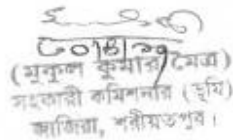 (মুকুল কুমার মৈত্র)
সহকারী কমিশনার (ভূমি)
জাজিরা, শরীয়তপুর।